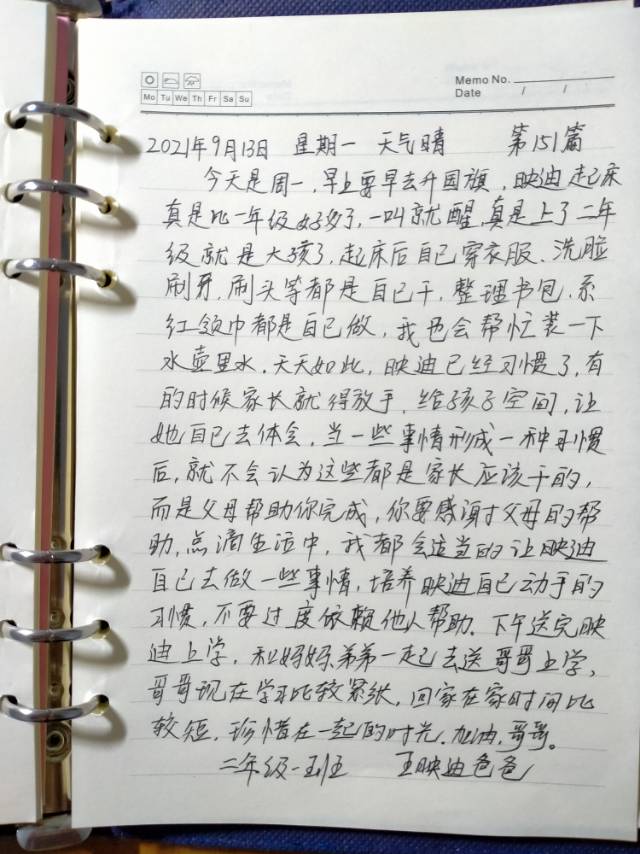 Memo No.
Mo Tu We Th Fr Sa Su
Date / /
2021年9月13日 星期一 天气晴 第151篇
今天是周一,早上要早去升国旗,映迪起床
真是比一年级好多了,一叫就醒,真是上了二年
级就是大孩了,起床后自己穿衣服、洗脸
刷牙,刷头等都是自己干,整理书包、系
红领巾都是自己做,我也会帮忙装一下
水壶里水,天天如此,映迪已经习惯了,有
的时候家长就得放手,给孩子空间,让
她自己去体会,当一些事情形成一种习惯
后,就不会认为这些都是家长应该干的,
而是父母帮助你完成,你要感谢父母的帮
助,点滴生活中,我都会适当的让映迪
自己去做一些事情,培养映迪自己动手的
习惯,不要过度依赖他人帮助.下午送完映
迪上学,和妈妈、弟弟一起去送哥哥上学,
哥哥现在学习比较紧张,回家在家时间比
较短,珍惜在一起的时光.加油,哥哥。
二年级一班 王映迪爸爸